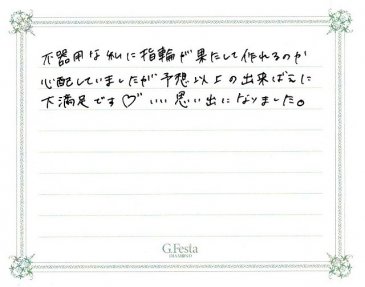 不器用な私に指輪が果たして作れるのか
心配していましたが予想以上の出来ばえに
大満足です♡ いい思い出になりました。
G.Festa